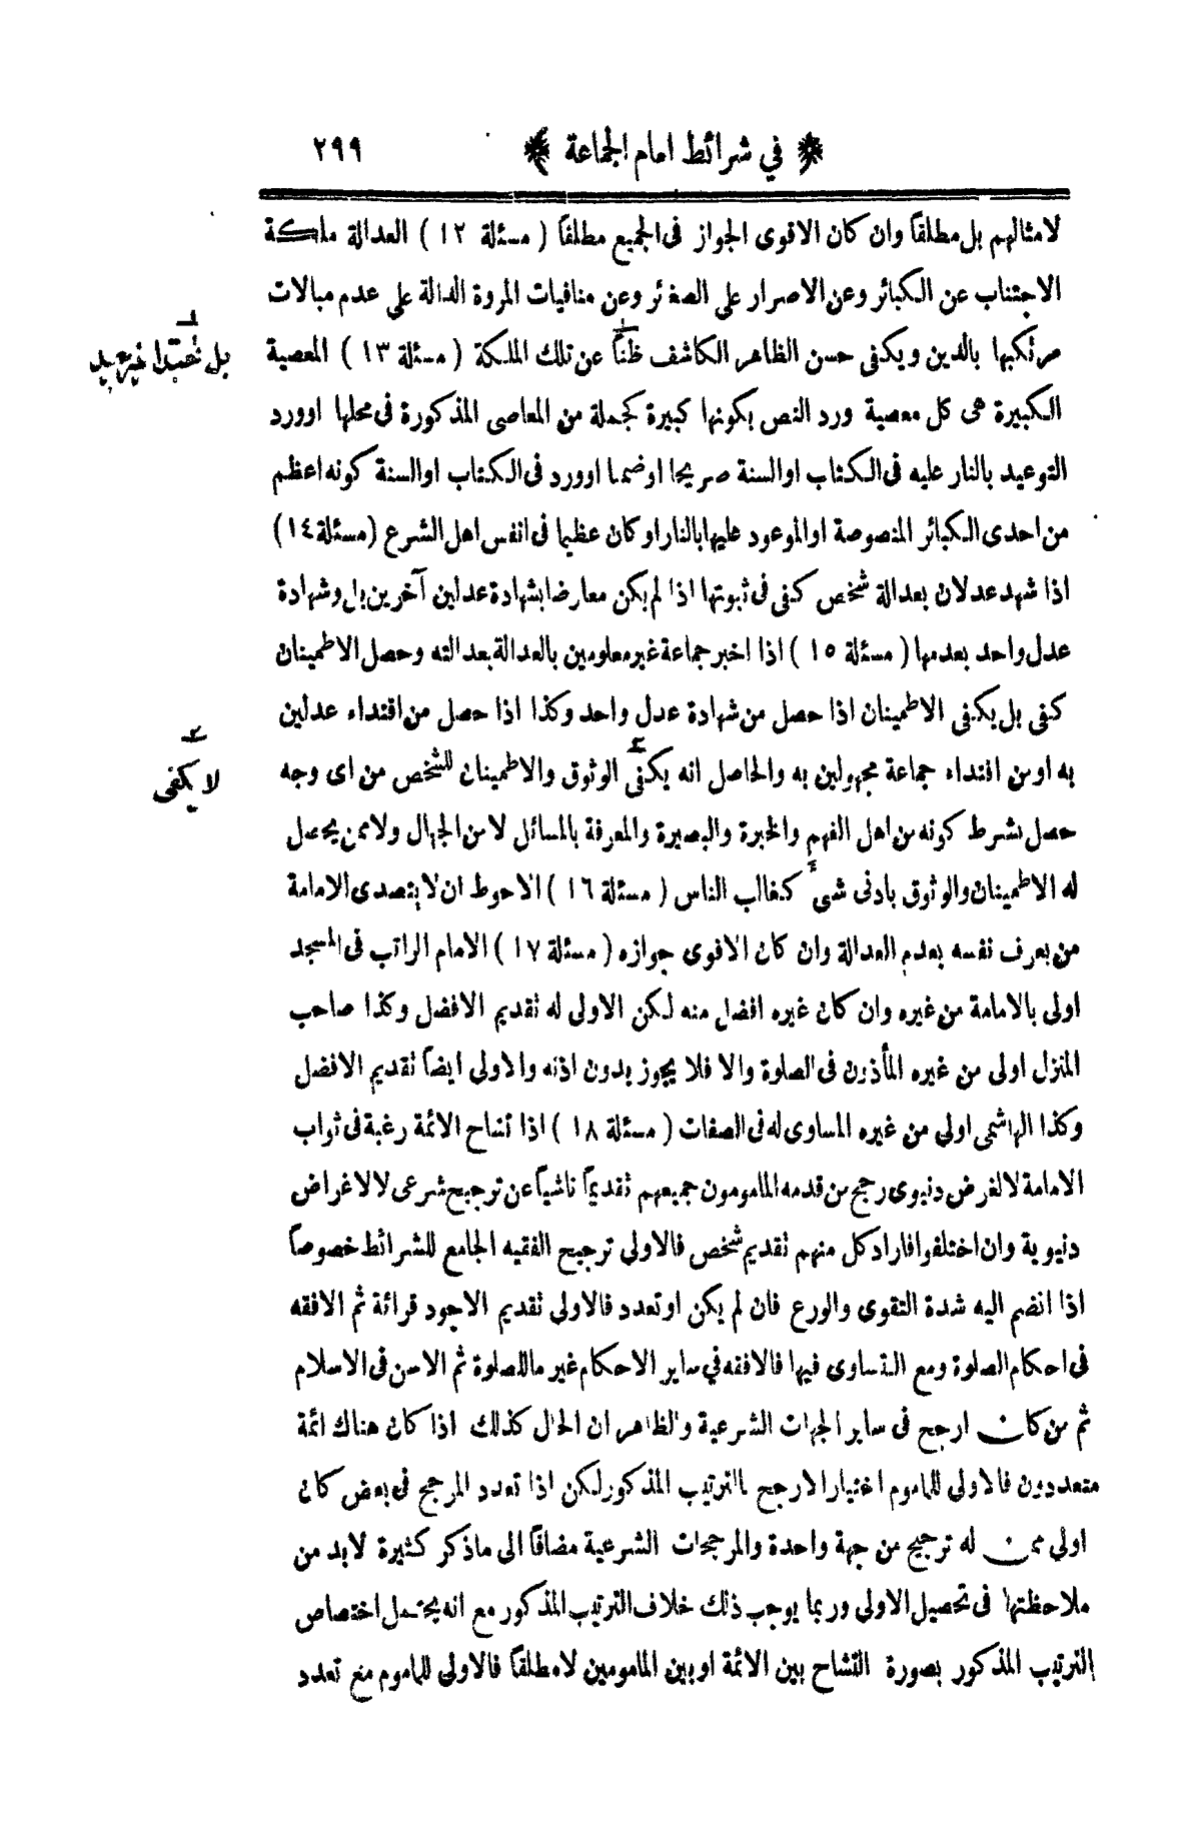 ﴿ في شرائط امام الجماعة ﴾ ٢٩٩
لامثالهم بل مطلقاً وان كان الاقوى الجواز فى الجميع مطلقاً ( مسئلة ١٢ ) العدالة ملكة
الاجتناب عن الكبائر وعن الاصرار على الصغائر وعن منافيات المروة الدالة على عدم مبالات
مرتكبها بالدين ويكفى حسن الظاهر الكاشف ظناً عن تلك الملكة ( مسئلة ١٣ ) المعصية
الكبيرة هى كل معصية ورد النص بكونها كبيرة كجملة من المعاصى المذكورة فى محلها اوورد
التوعيد بالنار عليه فى الكتاب اوالسنة صريحا اوضمنا اوورد فى الكتاب اوالسنة كونه اعظم
من احدى الكبائر المنصوصة اوالموعود عليها بالنار او كان عظيما فى انفس اهل الشرع (مسئلة ١٤)
اذا شهد عدلان بعدالة شخص كفى فى ثبوتها اذا لم يكن معارضا بشهادة عدلين آخرين بل وشهادة
عدل واحد بعدمها ( مسئلة ١٥ ) اذا اخبر جماعة غير معلومين بالعدالة بعدالته وحصل الاطمينان
كفى بل يكفى الاطمينان اذا حصل من شهادة عدل واحد وكذا اذا حصل من اقتداء عدلين
به اومن اقتداء جماعة مجهولين به والحاصل انه يكفى٢ الوثوق والاطمينان للشخص من اى وجه
حصل بشرط كونه من اهل الفهم والخبرة والبصيرة والمعرفة بالمسائل لامن الجهال ولاممن يحصل
له الاطمينان والوثوق بادنى شىء كغالب الناس ( مسئلة ١٦ ) الاحوط ان لا يتصدى الامامة
من يعرف نفسه بعدم العدالة وان كان الاقوى جوازه ( مسئلة ١٧ ) الامام الراتب فى المسجد
اولى بالامامة من غيره وان كان غيره افضل منه لكن الاولى له تقديم الافضل وكذا صاحب
المنزل اولى من غيره المأذون فى الصلوة والا فلا يجوز بدون اذنه والاولى ايضاً تقديم الافضل
وكذا الهاشمى اولى من غيره المساوى له فى الصفات ( مسئلة ١٨ ) اذا تشاح الائمة رغبة فى ثواب
الامامة لالغرض دنيوى رجح من قدمه المامومون جميعهم تقديماً ناشياً عن ترجيح شرعى لالاغراض
دنيوية وان اختلفوا فاراد كل منهم تقديم شخص فالاولى ترجيح الفقيه الجامع للشرائط خصوصاً
اذا انضم اليه شدة التقوى والورع فان لم يكن اوتعدد فالاولى تقديم الاجود قرائة ثم الافقه
فى احكام الصلوة ومع التساوى فيها فالافقه في ساير الاحكام غير ماللصلوة ثم الاسن فى الاسلام
ثم من كان ارجح فى ساير الجهات الشرعية والظاهر ان الحال كذلك اذا كان هناك ائمة
متعددون فالاولى للماموم اختيار الارجح بالترتيب المذكور لكن اذا تعدد المرجح فى بعض كان
اولى ممن له ترجيح من جهة واحدة والمرجحات الشرعية مضافاً الى ماذكر كثيرة لابد من
ملاحظتها فى تحصيل الاولى وربما يوجب ذلك خلاف الترتيب المذكور مع انه يحتمل اختصاص
الترتيب المذكور بصورة التشاح بين الائمة اوبين المامومين لامطلقاً فالاولى للماموم مع تعدد
١
بل تعبّدا
٢
لا يكفى